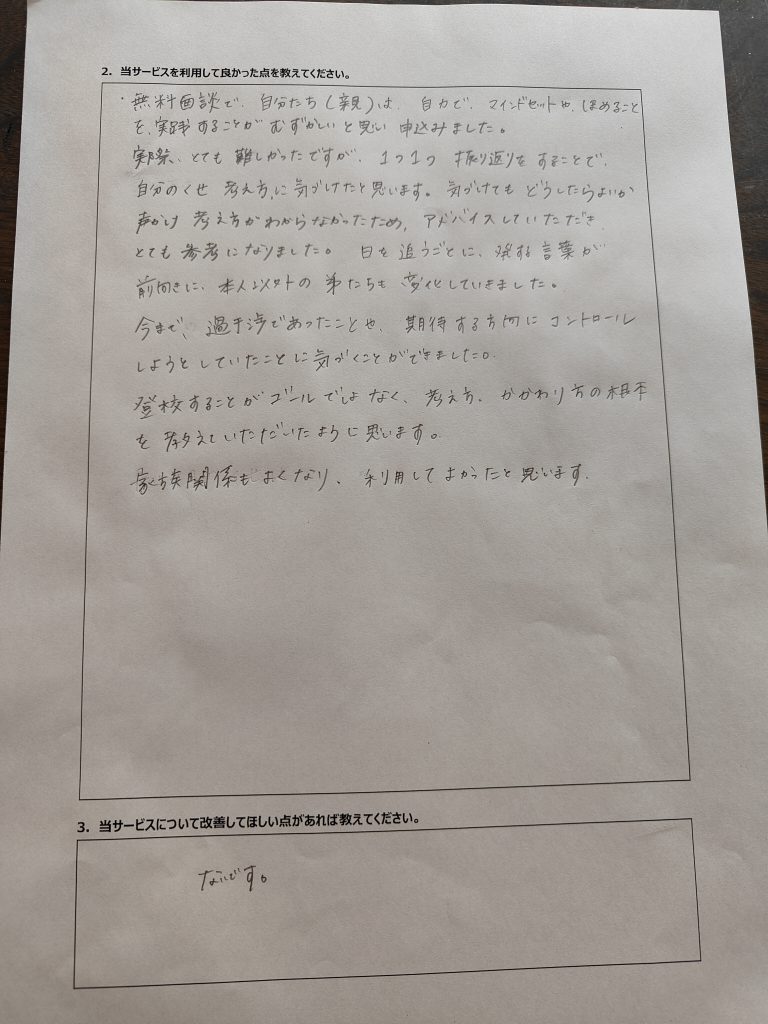 2. 当サービスを利用して良かった点を教えてください。
・無料面談で、自分たち(親)は、自力で、マインドセットや、ほめること
を、実践することがむずかしいと思い 申込みました。
実際、とても難しかったですが、1つ1つ 振り返りをすることで、
自分のくせ 考え方に気づけたと思います。気づけてもどうしたらよいか
声がけ 考え方がわからなかったため、アドバイスしていただき、
とても参考になりました。 日を追うごとに、発する言葉が
前向きに、本人以外の弟たちも変化していきました。
今まで、過干渉であったことや、期待する方向にコントロール
しようとしていたことに気づくことができました。
登校することがゴールではなく、考え方、かかわり方の根本
を教えていただいたように思います。
家族関係もよくなり、利用してよかったと思います。
3. 当サービスについて改善してほしい点があれば教えてください。
ないです。